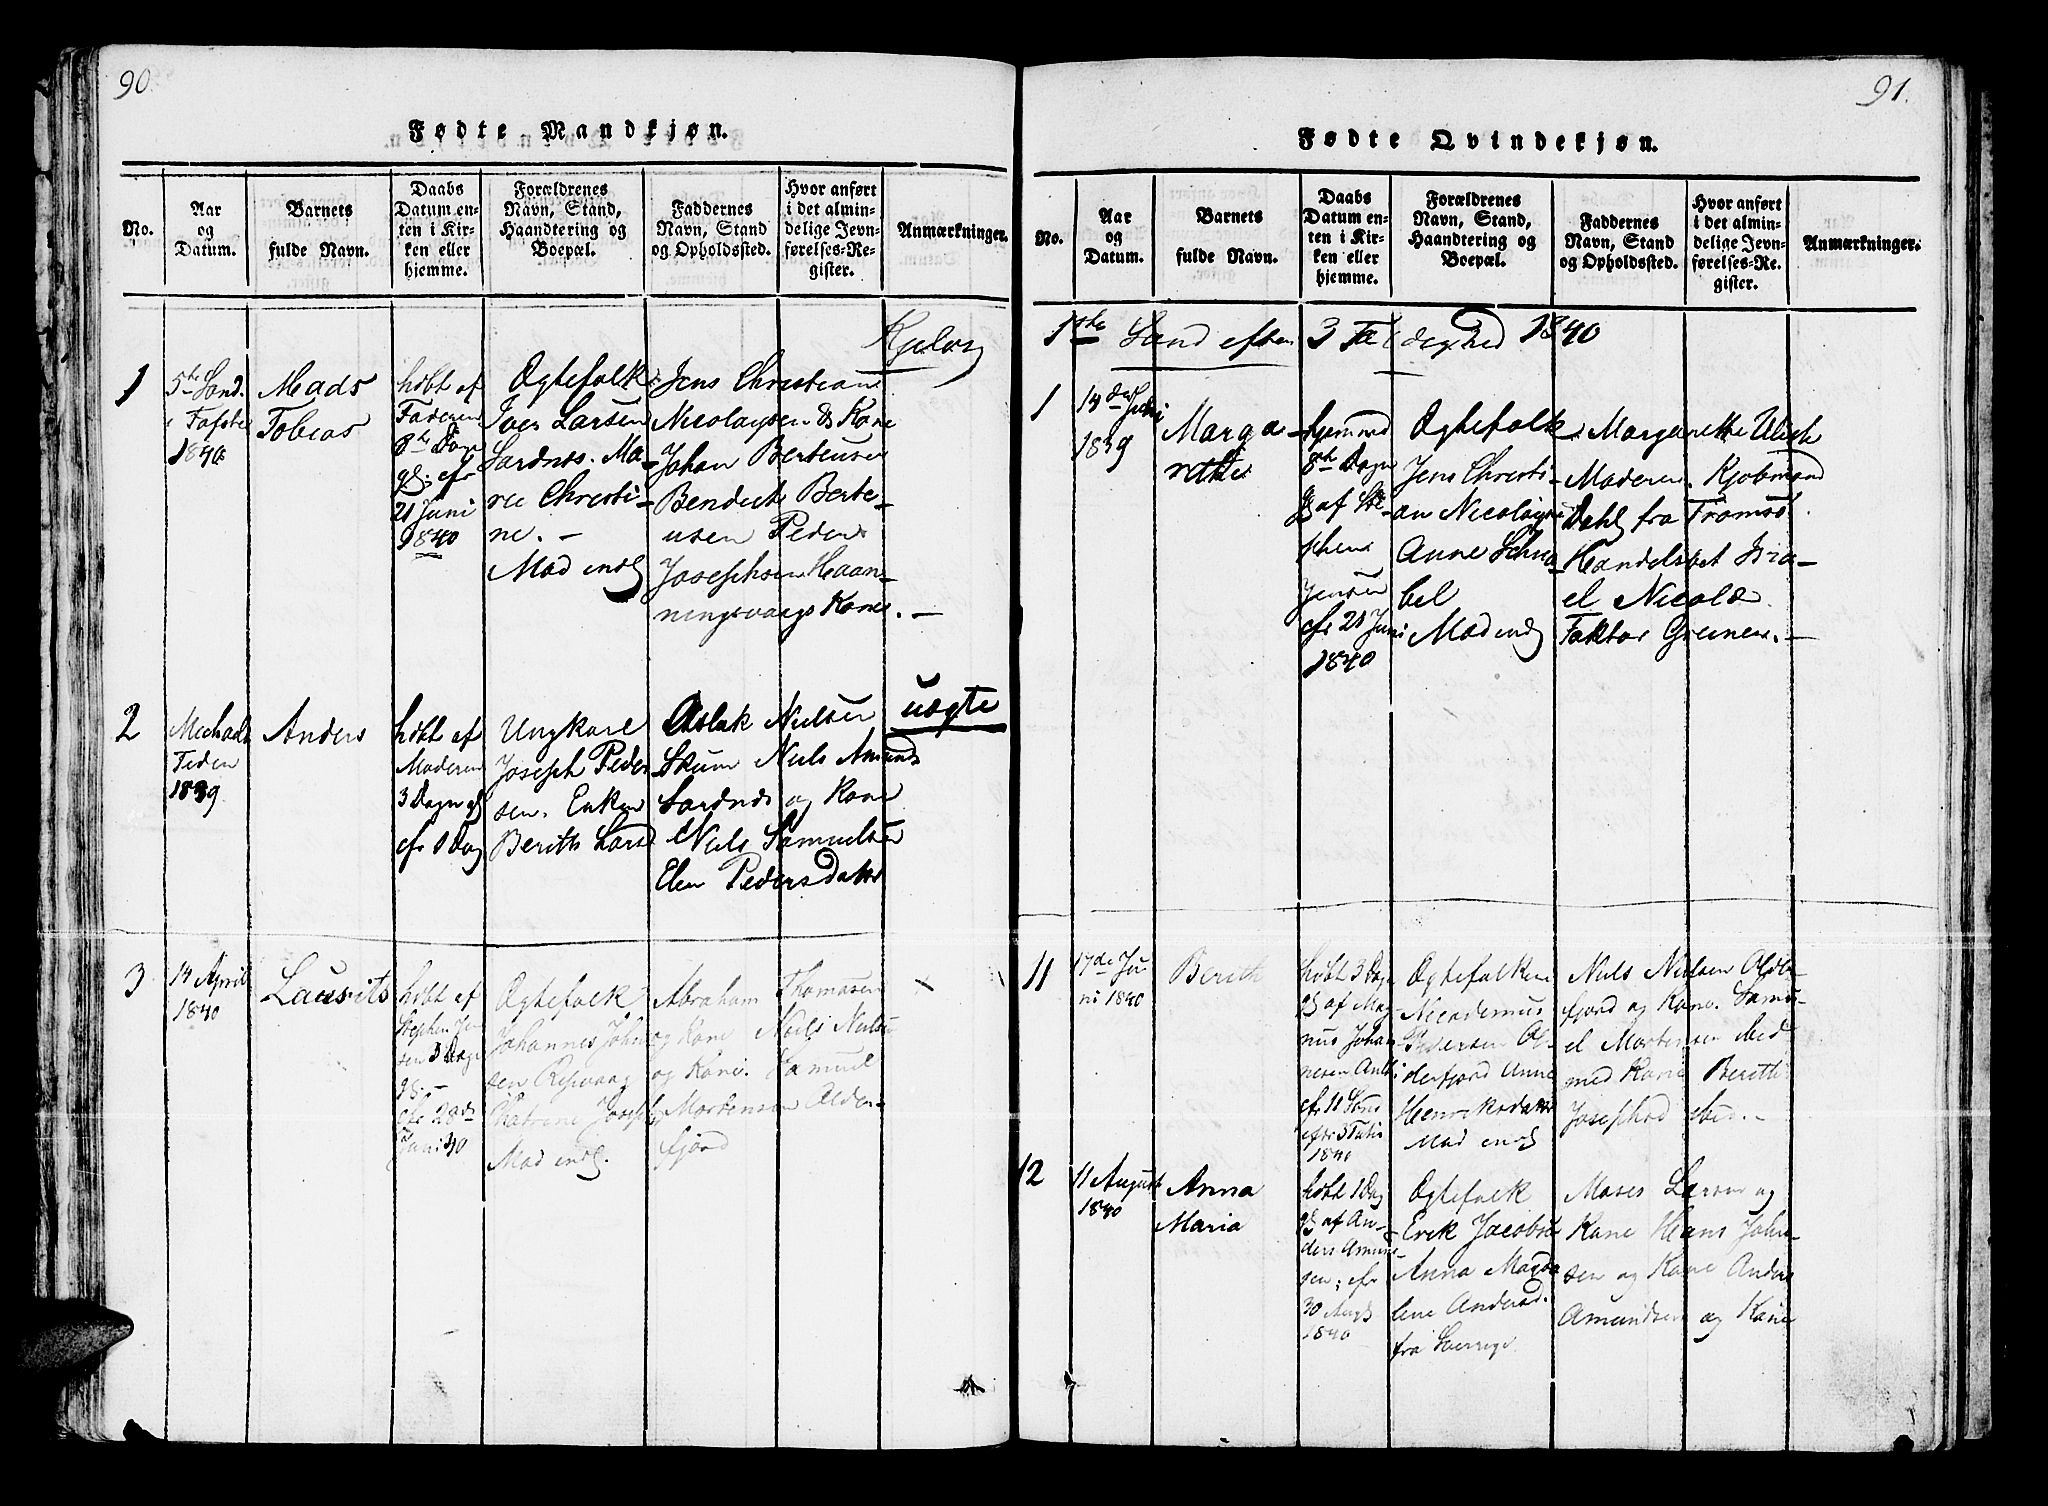 90
Fødte Mandkjøn.
No.
Aar
og
Datum.
Barnets
fulde Navn.
Daabs
Datum en-
ten i Kir-
ken eller
hjemme.
Forældrenes
Navn, Stand,
Haandtering og
Boepæl.
Faddernes
Navn, Stand
og Opholdssted.
Hvor anført
i det almin-
delige Jevn-
førelses-Re-
gister.
Anmærkninger.
1
5te Sønd.
i Faste
1840
Mads
Tobias
høbt af
Faderen
8te Dage
gl: efr
21 Juni
1840
Ogtefolk
Iver Larsen
Sardnes. Ma-
rie Christi-
ne. –
Mod indl
Jens Christian
Nicolaysen & Kone
Johan Berteusen
Bendict Berte-
usen Peder
Josephsen Haan-
ningsvaags Kone. –
2
Michaels
Tiden
1839
Anders
høbt af
Moderen
3 Dage gl
efr 1 Dag
Ungkarl
Joseph Peder
sen. Enken
Berith Larsd
Aslak Nielsen
Skum Niels Amunds
Sardnes og Kone
Niels Samuelsen
Elen Pedersdatter
uægte
3
14 April
1840
Laurits
høbt af
Stephen Jen-
sen 3 Dage
gl. –
Juni 40
Ogtefolk
Johannes Johan
sen Risvaag
Katrine Josephs
Mod indl.
Abraham Thomasen
og Kone Niels Nielsen
og Kone. Samuel
Mortensen Alder-
fjord
91.
Fødte Qvindekjøn.
No.
Aar
og
Datum.
Barnets
fulde Navn.
Daabs
Datum en-
ten i Kir-
ken eller
hjemme.
Forældrenes
Navn, Stand,
Haandtering og
Boepæl.
Faddernes
Navn, Stand
og Opholdssted.
Hvor anført
i det almin-
delige Jevn-
førelses-Re-
gister.
Anmærkninger.
1ste Sønd efter 3 1840
1
14 de Juli
1839
Marga-
rethe
hjemmed
8te Dage
gl af Ste-
phen
Jensen
efr 21 Juni
1840
Ogtefolk
Jens Christi-
an Nicolaysen
Anne Schna-
bel
Mod indl
Margarethe Ulich
Moderen. Kjøbmand
Dahl fra Tromsø
Handelsbet Isra-
el Nicolæ
Faktor Greiner. –
11
17de Ju
ni 1840
Berith
høbt 3 Dage
gl af Mag-
nus Johan-
nesen
efr 11 Sønd
efter 3
1840
Ogtefolken
Nicodemus
Pedersen Ol-
derfjord Anne
Henriksdatter
Mod indl
Niels Nielsen Olde-
fjord og Kone. Samu-
el Mortensen ibid
med Kone Berith
Josephsd ibid. –
12
11 August
1840
Anna
Maria
høbt 1 Dag
gl af An-
ders Amun-
sen; efr
30 Augs
1840
Ogtefolk
Erik Jacobsen
Anna Magda
lene Andersd.
fra Sverrige
Moses Larsen og
Kone Hans Johan-
sen og Kone Anders
Amundsen og Kone